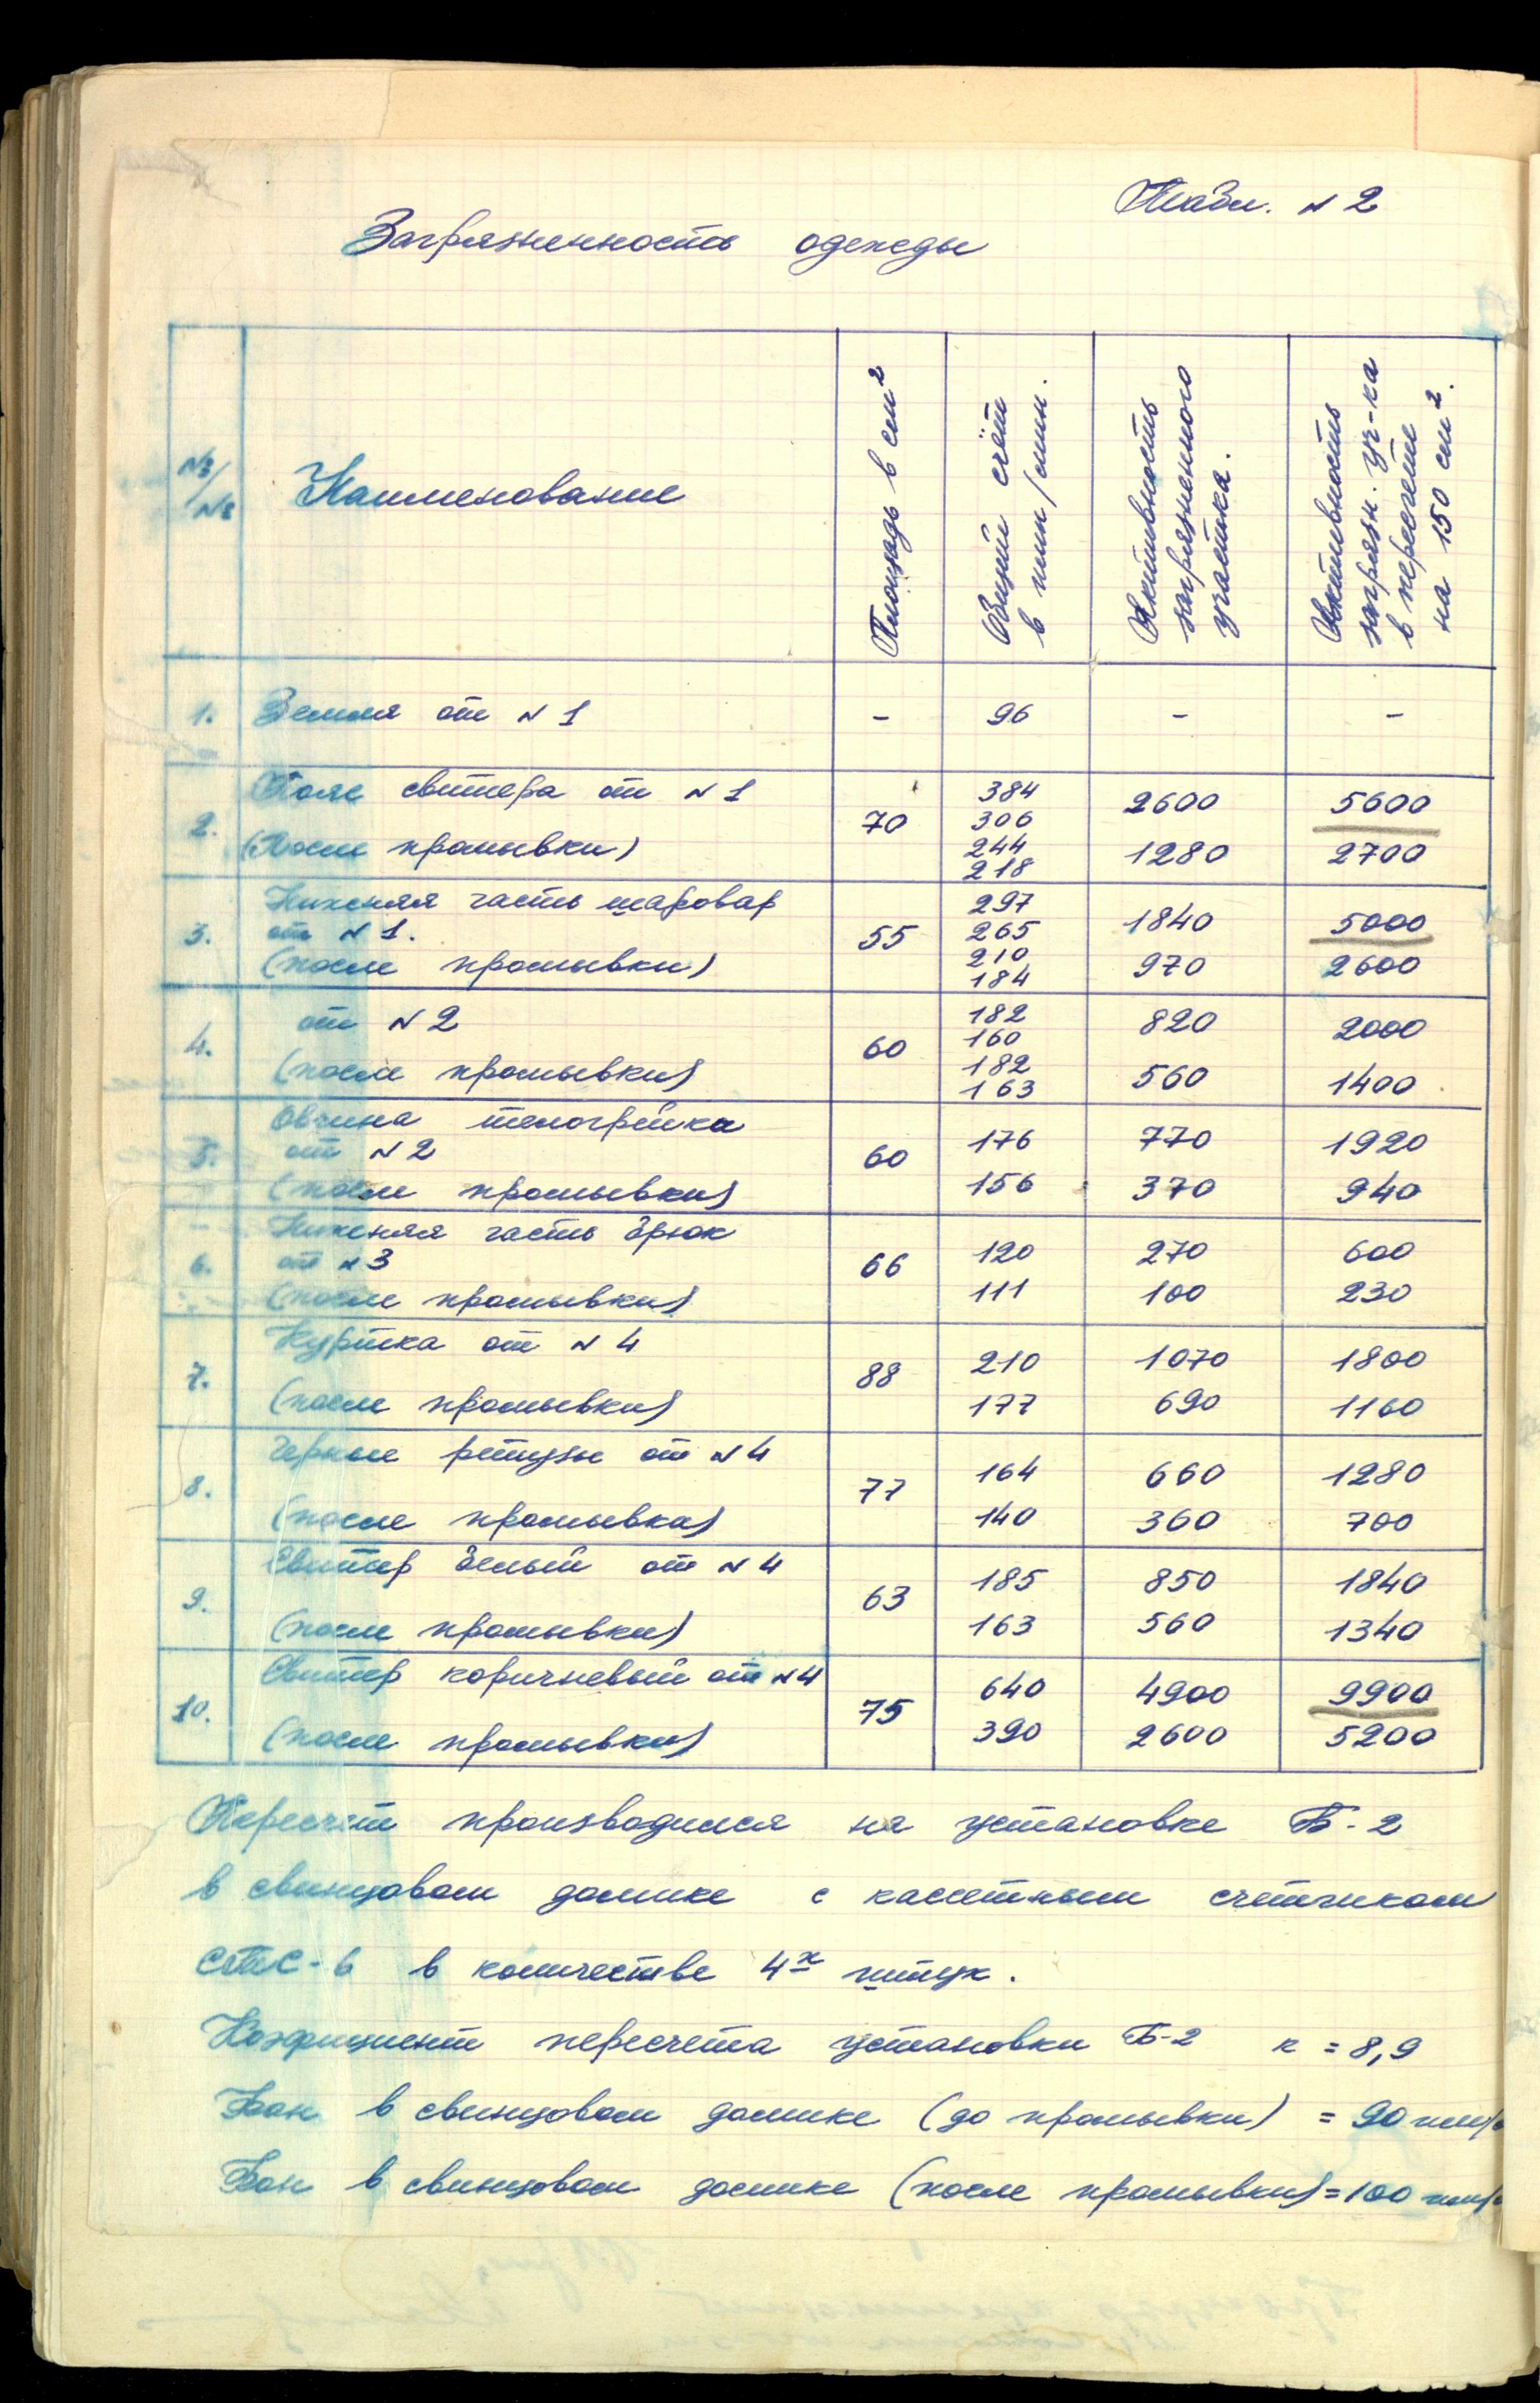 Табл. №2
Загрязненность одежды
№/№ Наименование Площадь в см² Общий счёт в имп/мин. Активность загрязненного участка. Активность загрязн. уч-ка в пересчете на 150 см².
1. Земля от №1 - 96 - -
2. Пояс свитера от №1 70 384 306 2600 5600
(После промывки) 244 218 1280 2700
3. Нижняя часть шаровар от №1. 55 297 265 1840 5000
(после промывки) 210 184 970 2600
4. от №2 60 182 160 820 2000
(после промывки) 182 163 560 1400
5. Овчина телогрейка от №2 60 176 770 1920
(после промывки) 156 370 940
6. Нижняя часть брюк от №3 66 120 270 600
(после промывки) 111 100 230
7. Куртка от №4 88 210 1070 1800
(после промывки) 177 690 1160
8. Черные ретузы от №4 77 164 660 1280
(после промывки) 140 360 700
9. Свитер белый от №4 63 185 850 1840
(после промывки) 163 560 1340
10. Свитер коричневый от №4 75 640 4900 9900
(после промывки) 390 2600 5200
Пересчет производился на установке Б-2
в свинцовом домике с кассетным счетчиком
СТС-6 в количестве 4х штук.
Коэфициент пересчета установки Б-2 к = 8,9
Фон в свинцовом домике (до промывки) = 90 имп/
Фон в свинцовом домике (после промывки) = 100 имп/